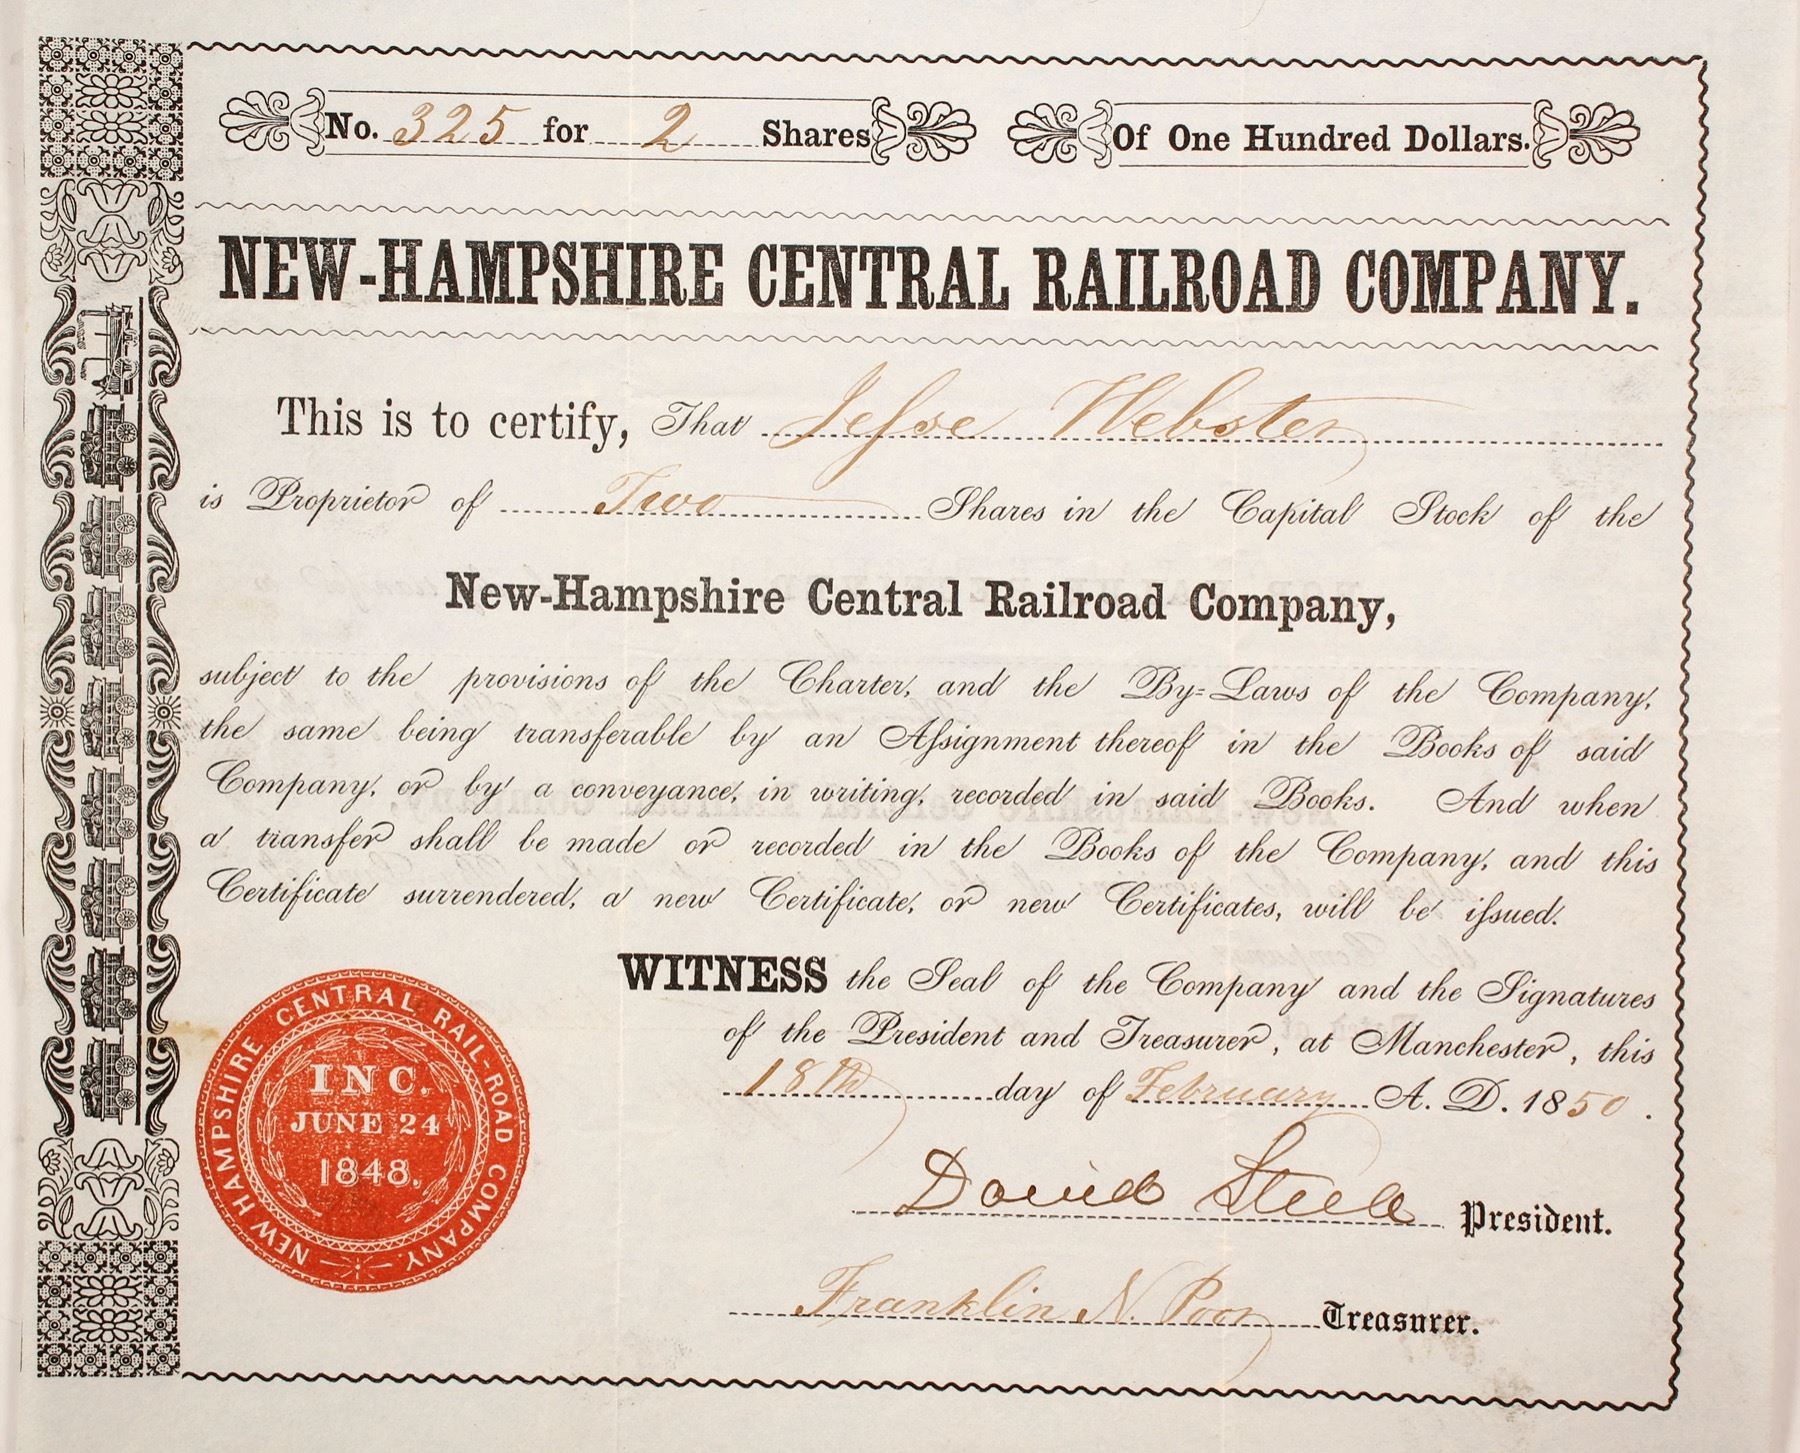 No. 325 for 2 Shares Of One Hundred Dollars.
NEW-HAMPSHIRE CENTRAL RAILROAD COMPANY.
This is to certify, That Jeſse Webster
is Proprietor of Two Shares in the Capital Stock of the
New-Hampshire Central Railroad Company,
subject to the provisions of the Charter, and the By=Laws of the Company,
the same being transferable by an Aſsignment thereof in the Books of said
Company, or by a conveyance, in writing, recorded in said Books. And when
a transfer shall be made or recorded in the Books of the Company, and this
Certificate surrendered, a new Certificate, or new Certificates, will be iſsued.
WITNESS the Seal of the Company and the Signatures
of the President and Treasurer, at Manchester, this
18th day of February A. D. 1850.
David Steele President.
Franklin N. Poor Treasurer.
NEW HAMPSHIRE CENTRAL RAIL-ROAD COMPANY.
INC.
JUNE 24
1848.